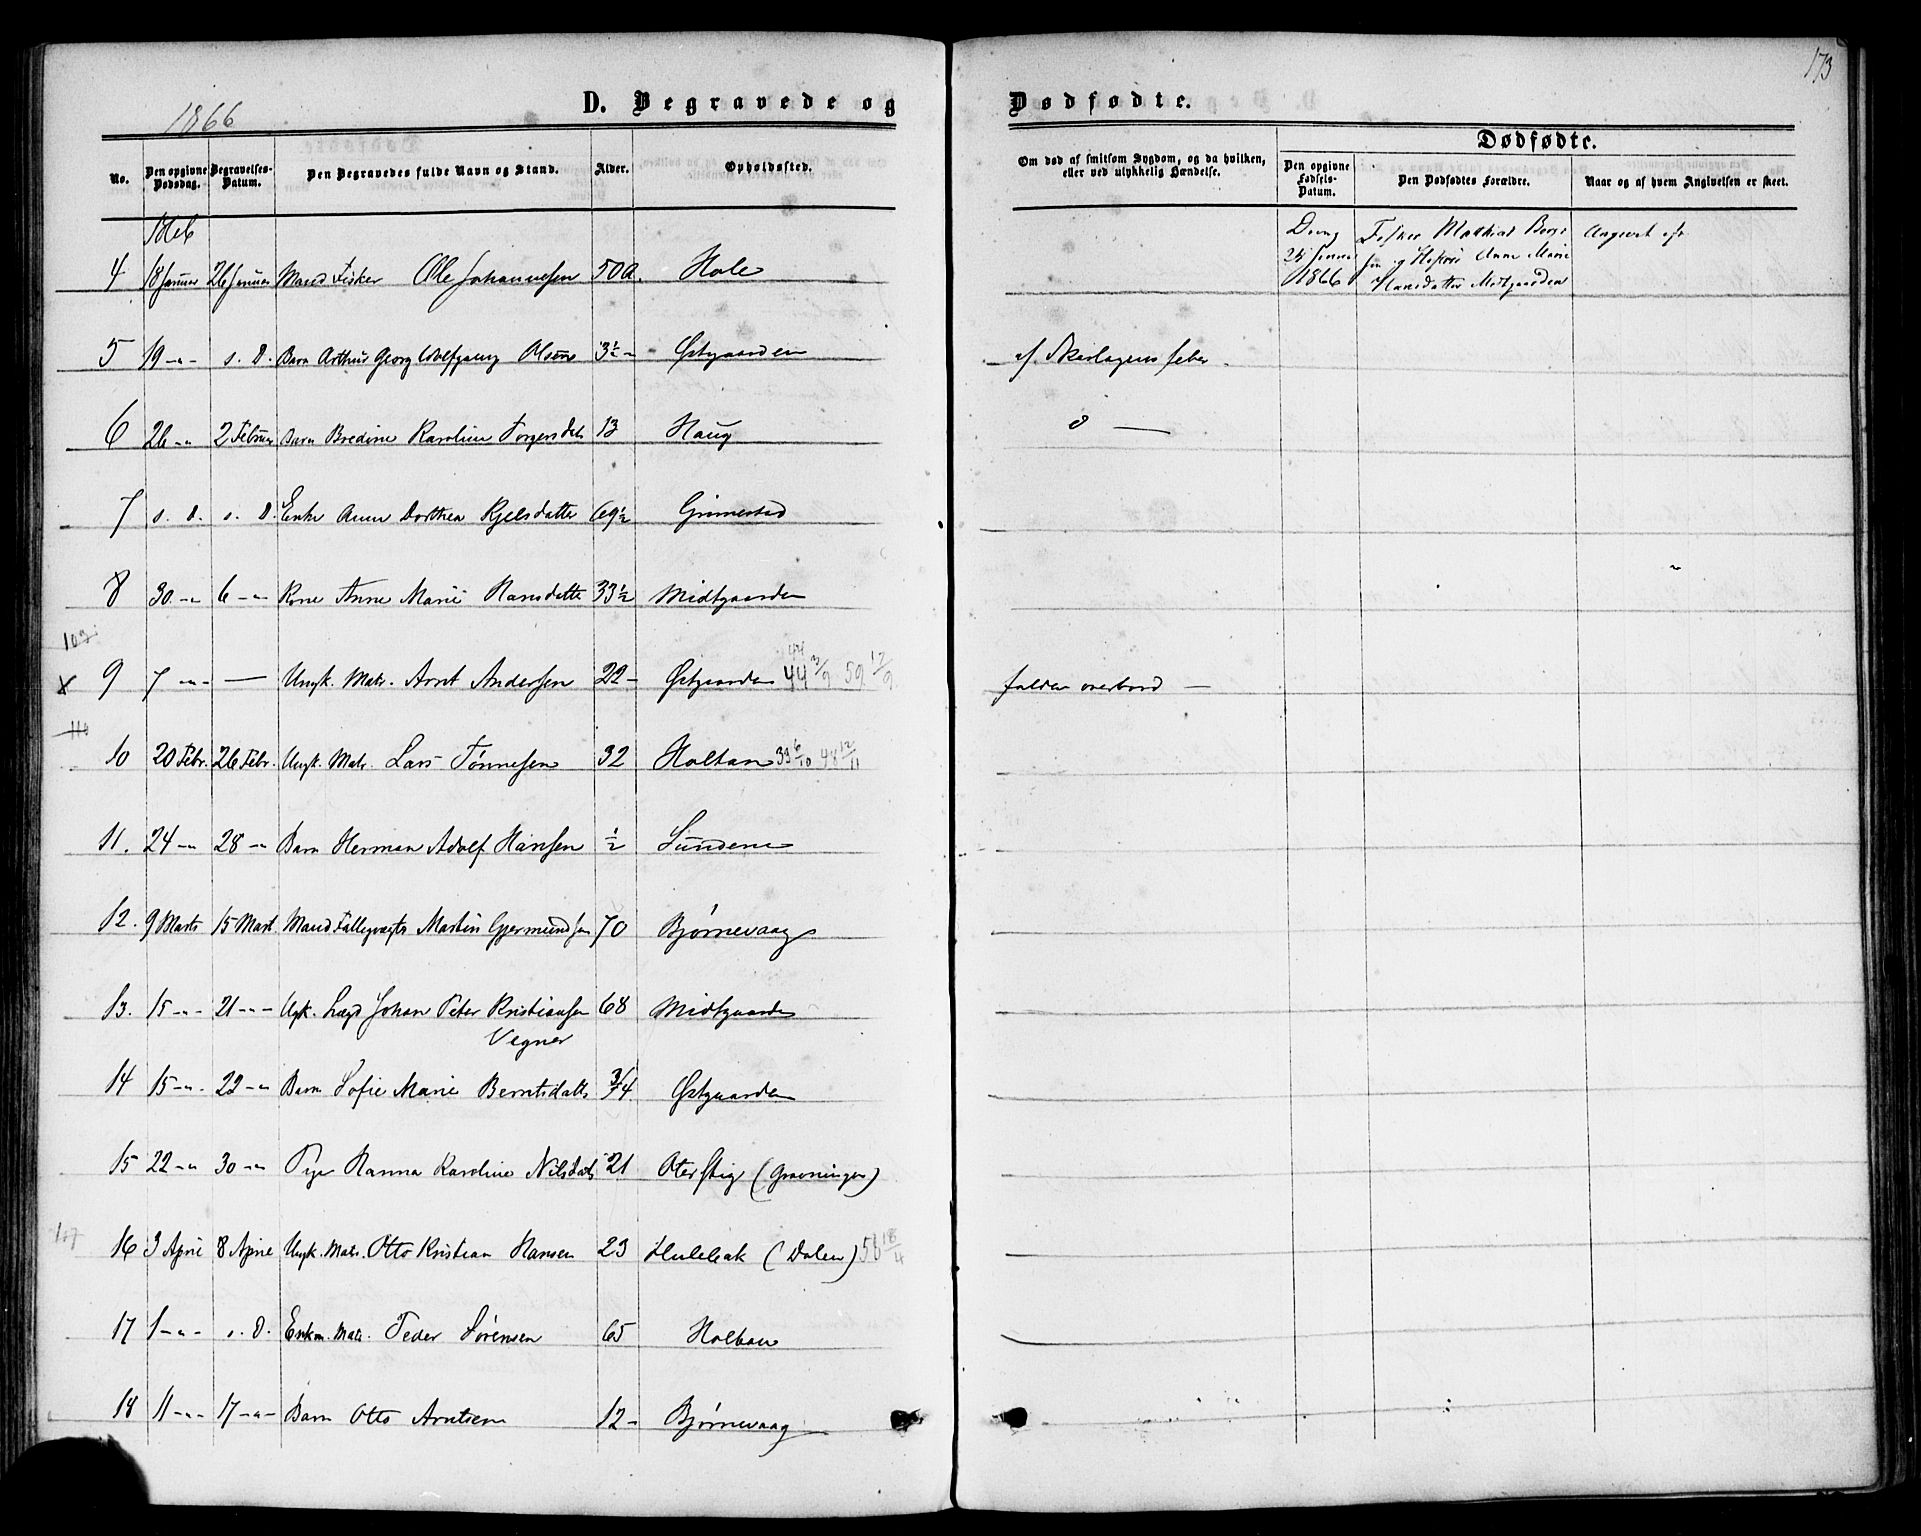 173
1866
D. Begravede og Dødfødte.
Dødfødte.
No. Den opgivne Dødsdag. Begravelses-Datum. Den Begravedes fulde Navn og Stand. Alder. Opholdssted. Om død af smitsom Sygdom, og da hvilken, eller ved ulykkelig Hændelse. Den opgivne Fødsels-Datum. Den Dødfødtes Forældre. Naar og af hvem Angivelsen er skeet.
4 18 Januar 26 Januar Mand Fisker Ole Johannesen 50 A. Hole
Dreng 1866 Fisker Mathias
Anne Marie
Hansdatter Midtgaarden
5 19 -"- s. D. Barn Arthur Georg Wolfgang Olsen 3½ - Østgaarden af Skarlagensfeber
6 26 -"- 2 Februar Barn Bredine Karoline Torgersdtr 13 Haug
7 s. D. s. D. Enke Anne Dorthea Kjelsdatter 69½ Grimestad
8 30 -"- 6 -"- Kone Anne Marie Hansdatter 33½ Midtgaarden
103
x 9 7 -"- — Ungk. Matr. Arnt Andersen 22 - Østgaarden 44 3/9 59 12/9 falden overbord —
110
10 20 Febr. 26 Febr. Ungk. Matr. Lars Tønnesen 32 Holtan 33 6/10 48 12/11
11. 24 -"- 28 -"- Barn Herman Adolf Hansen ½ Sundene
12. 9 Marts 15 Mart Mand Martin Gjermundsen 70 Bjørnevaag
13. 15 -"- 21 -"- Ugk. Lægd Johan Peter Kristiansen 68 Midtgaarden
Vegner
14 15 -"- 22 -"- Barn Sofie Marie Berntsdatter 3/4 Østgaarden
15 22 -"- 30 -"- Pige Hanna Karoline Nilsdatr 21 Oterstig (Grævningen)
16 3 April 8 April Ungk. Matr. Otto Kristian Hansen 23 Hulebak (Dalen) 58 18/4
17 1 -"- s. D. Enkm. Matr. Peder Sørensen 65 Holtan
18 11 -"- 17 -"- Barn Otto Arntsen 12 - Bjørnevaag